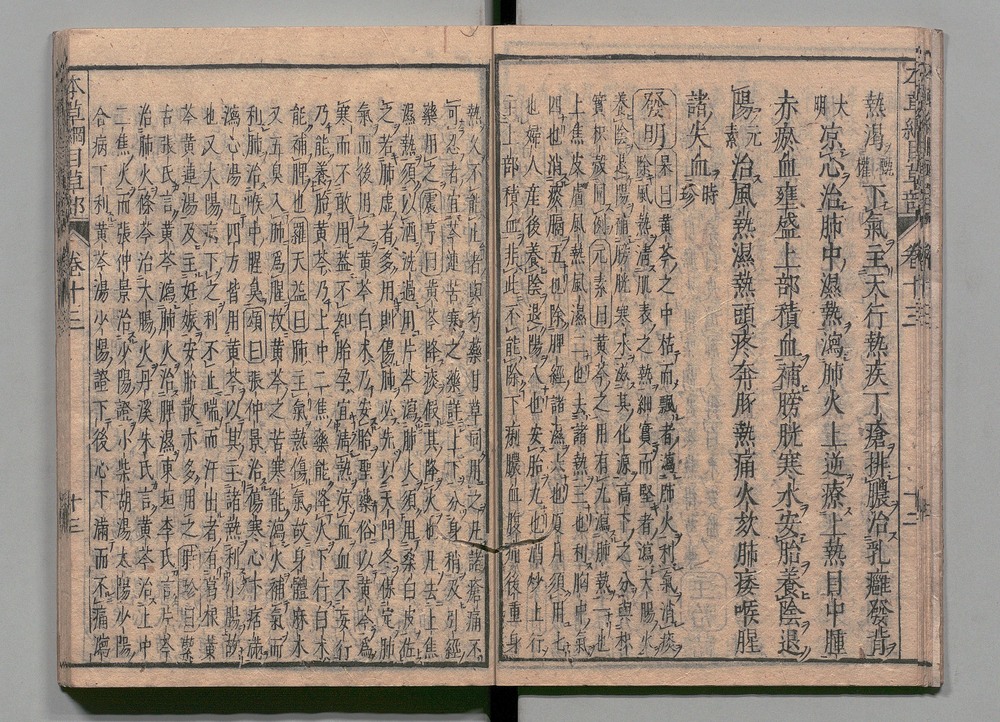 熱渴甄權下氣主天行熱疾丁瘡排膿治乳癰發背
大明凉心治肺中濕熱瀉肺火上逆療上熱目中腫
赤瘀血壅盛上部積血補膀胱寒水安胎養陰退
陽元素治風熱濕熱頭疼奔豚熱痛火欬肺痿喉腥
諸失血時珍
發明杲曰黄芩之中枯而飄者瀉肺火利氣消痰
除風熱清肌表之熱細實而堅者瀉大腸火
養陰退陽補膀胱寒水滋其化源高下之分與枳
實枳殼同例元素曰黄芩之用有九瀉肺熱一也
上焦皮膚風熱風濕二也去諸熱三也利胸中氣
四也消痰膈五也除脾經諸濕六也夏月須用七
也婦人産後養陰退陽八也安胎九也酒炒上行
主上部積血非此不能除下痢膿血腹痛後重身
熱久不能止者與芍藥甘草同用之凡諸瘡痛不
可忍者宜芩連苦寒之藥詳上下分身稍及引經
藥用之震亨曰黄芩降痰假其降火也凡去上焦
濕熱須以酒洗過用片芩瀉肺火須用桑白皮佐
之若肺虚者多用則傷肺必先以天門冬保定肺
氣而後用之黄芩白术乃安胎聖藥俗以黄芩爲
寒而不敢用蓋不知胎孕宜清熱凉血血不妄行
乃能養胎黄芩乃上中二焦藥能降火下行白术
能補脾也羅天益曰肺主氣熱傷氣故身體麻木
又五臭入肺爲腥故黄芩之苦寒能瀉火補氣而
利肺治喉中腥臭頌曰張仲景治傷寒心下痞滿
瀉心湯凡四方皆用黄芩以其主諸熱利小腸故
也又太陽病下之利不止喘而汗出者有葛根黄
芩黄連湯及主妊娠安胎散亦多用之時珍曰潔
古張氏言黄芩瀉肺火治脾濕東垣李氏言片芩
治肺火條芩治大腸火丹溪朱氏言黄芩治上中
二焦火而張仲景治少陽證小柴胡湯太陽少陽
合病下利黄芩湯少陽證下後心下滿而不痛瀉
本草綱目草部 卷十三 十三